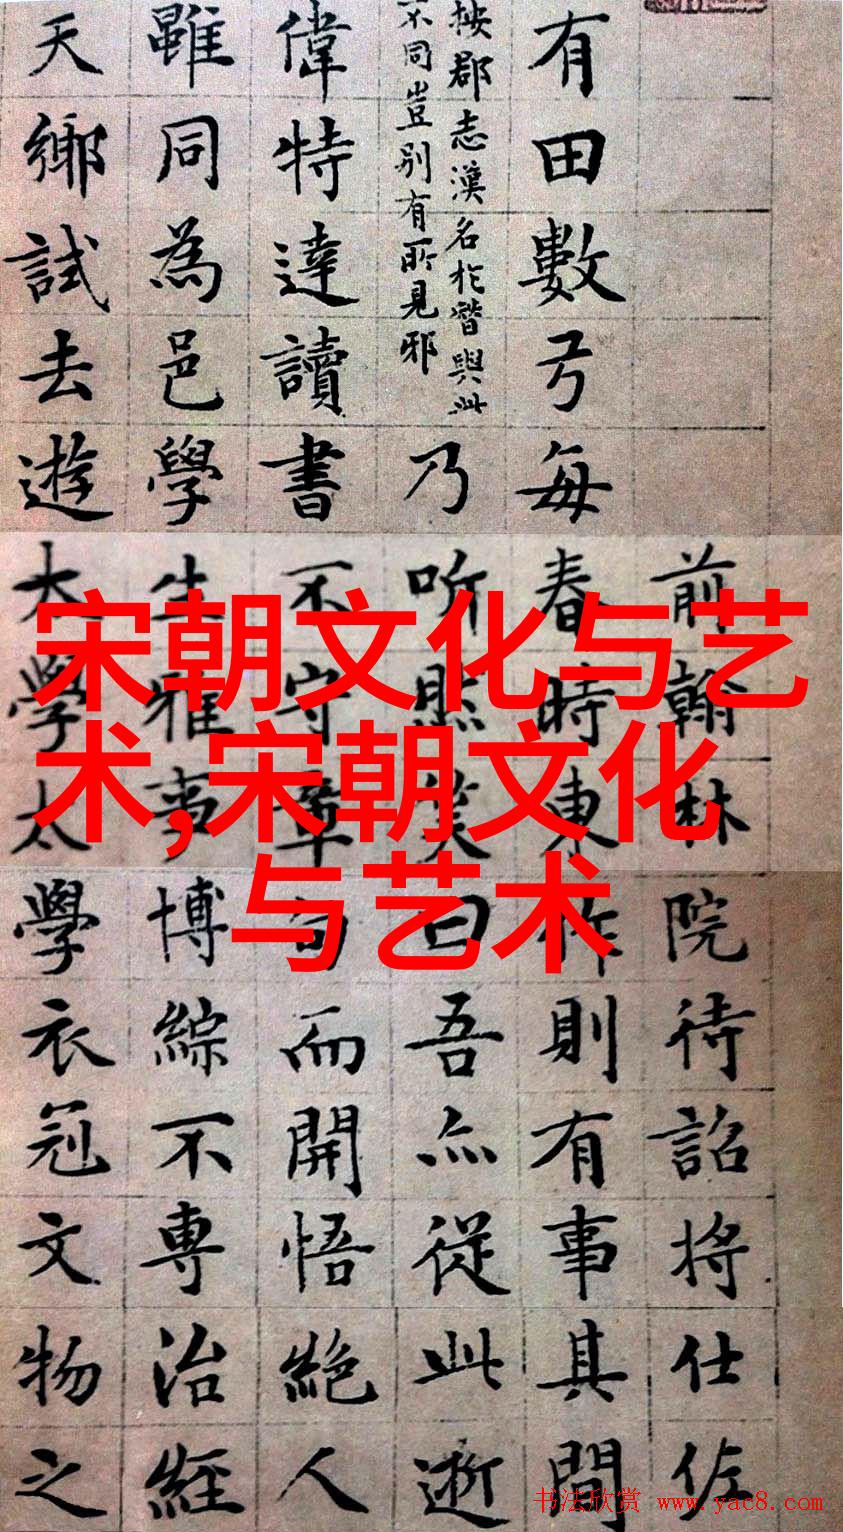 宋朝文化与艺
术,宋朝文化
与艺术
前翰林院待詔将仕佐
有田數丂每春時東作則有事其間
按郡志漢名與此
不同豈别有所見邪
乃听然笑曰吾亦從此逝
偉特達讀書不守章句而開悟絶人
雖同為邑學生雅事博綜不専治經
天鄉試去遊太學太學衣冠文物之
书法欣赏 www.yac8.com